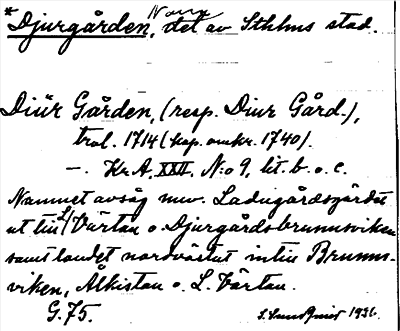 *Djurgården, Norra, del av Sthlms stad.
Diur Gården, (resp. Diur Gård.),
trol. 1714 (kop. omkr. 1740).
—. Kr. A. XXII, N:o 9, lit. b. o. c.
Namnet avsåg nuv. Ladugårdsgärdet
ut till L. Värtan o. Djurgårdsbrunnsviken
samt landet nordvästut intill Brunns-
viken, Ålkistan o. L. Värtan.
G. 75. S. Lundqvist 1936.